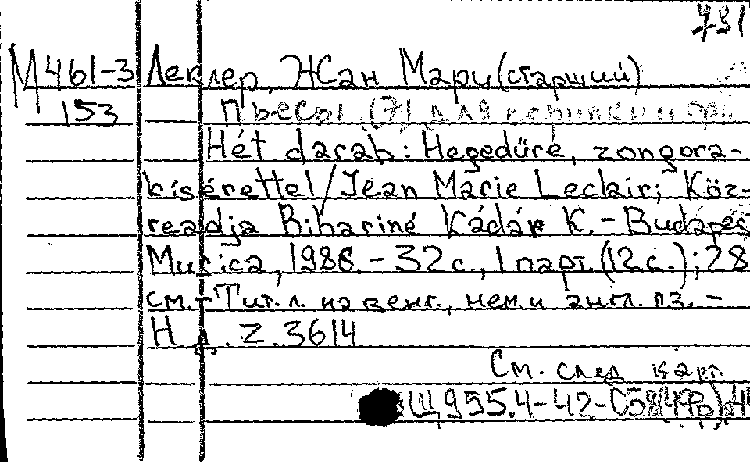 791
М461-3 Леклер, Жан Мари (старший)
153 Пьесы (7) для скрипки и фп.
Hét darab: Hegedűre, zongora-
kísérettel / Jean Marie Leclair; Köz-
readja Bihariné Kádár K. - Budapest
Musica, 1988. - 32 с., 1 парт. (12 с.); 28
см. - Тит. л. на венг., нем. и англ. яз. -
Н. д. Z. 3614
См. след карт.
Щ955.4-42-